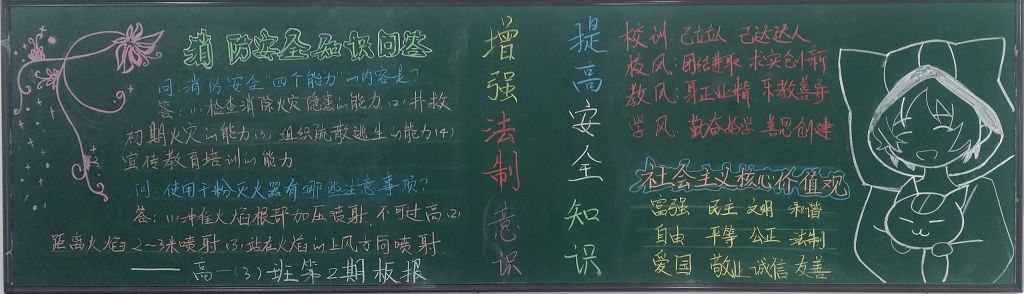 消防安全知识问答
问:消防安全"四个能力"的内容是?
答:(1)检查消除火灾隐患的能力(2)扑救
初期火灾的能力(3)组织疏散逃生的能力(4)
宣传教育培训的能力
问:使用干粉灭火器有哪些注意事项?
答:(1)冲住火焰根部加压喷射.不可过高(2)
距离火焰2~3米喷射(3)站在火焰的上风方向喷射.
——高一(3)班第2期板报
增强法制意识
提高安全知识
校训:己立立人 己达达人
校风:团结进取 求实创新
教风:身正业精 乐教善导
学风:勤奋好学 善思创建
社会主义核心价值观
富强 民主 文明 和谐
自由 平等 公正 法制
爱国 敬业 诚信 友善